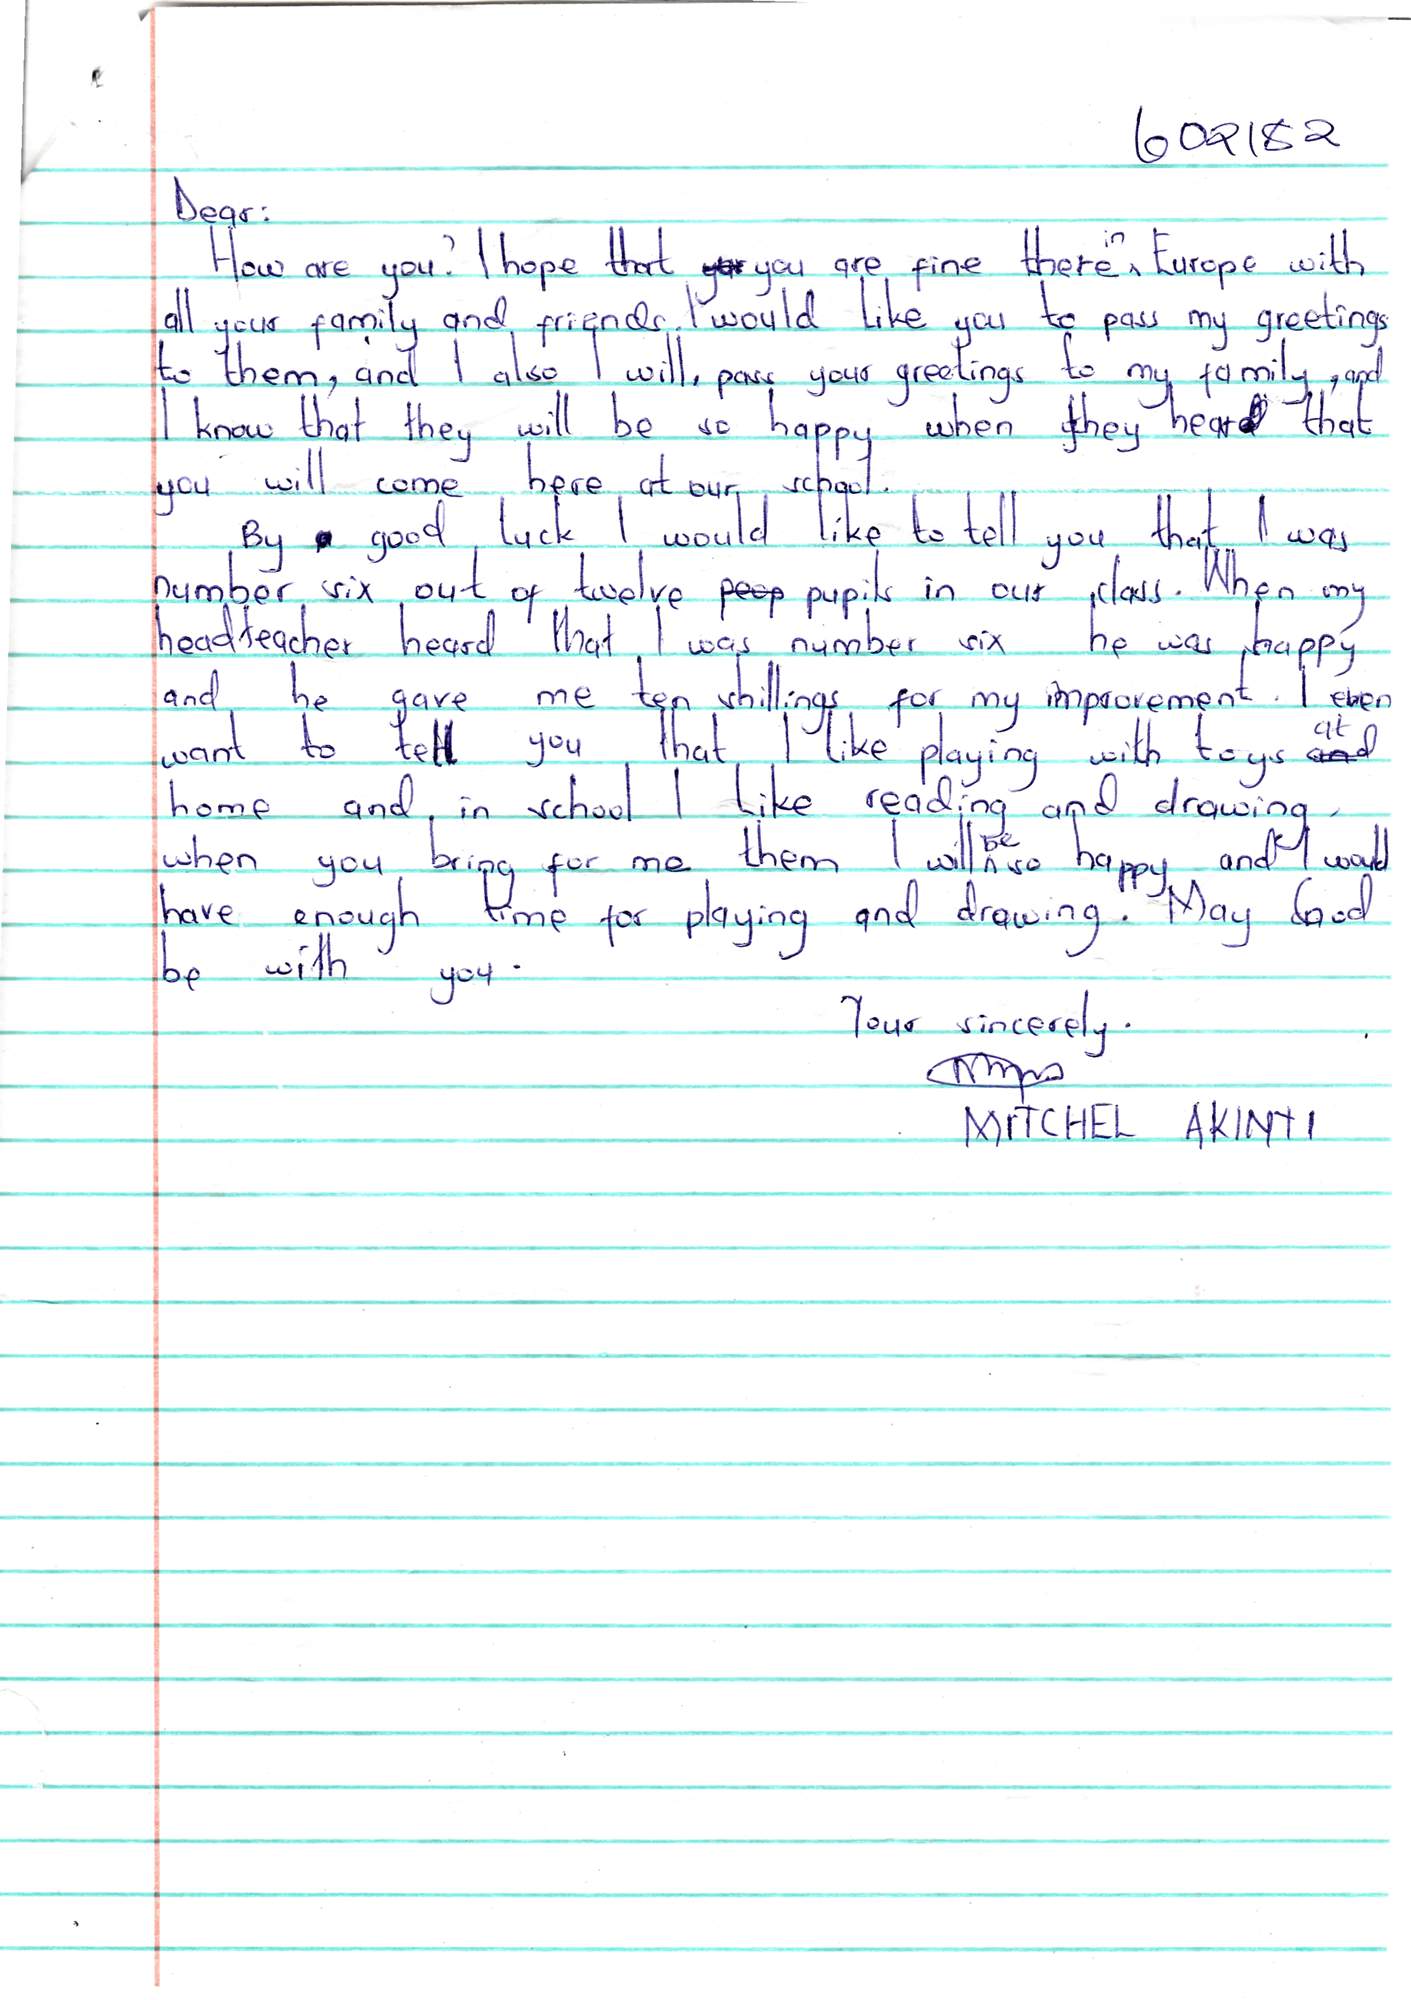 602182
Dear:
How are you? I hope that you are fine there in Europe with
all your family and friends. I would like you to pass my greetings
to them, and I also I will, pass your greetings to my family, and
I know that they will be so happy when they heard that
you will come here at our school.
By good luck I would like to tell you that I was
number six out of twelve peop pupils in our class. When my
headteacher heard that I was number six he was happy
and he gave me ten shillings for my improvement. I even
want to tell you that I like playing with toys at
home and in school I like reading and drawing.
when you bring for me them I will be so happy and I would
have enough time for playing and drawing. May God
be with you.
Your sincerely.
MITCHEL AKINYI